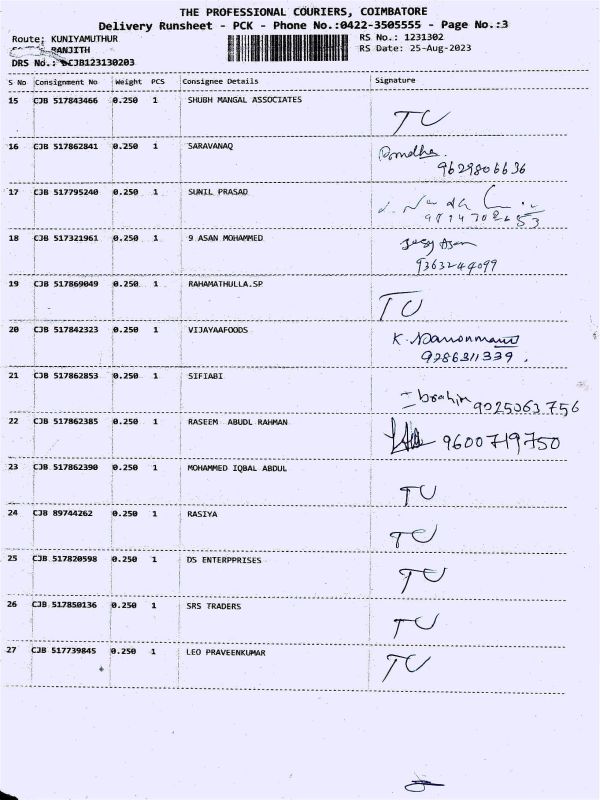 THE PROFESSIONAL COURIERS, COIMBATORE
Delivery Runsheet - PCK - Phone No.:0422-3505555 - Page No.:3
Route: KUNIYAMUTHUR RS No.: 1231302
RANJITH RS Date: 25-Aug-2023
DRS No.: DCJB123130203
S No Consignment No Weight PCS Consignee Details Signature
15 CJB 517843466 0.250 1 SHUBH MANGAL ASSOCIATES
TU
16 CJB 517862841 0.250 1 SARAVANAQ
9629806636
17 CJB 517795240 0.250 1 SUNIL PRASAD
18 CJB 517321961 0.250 1 9 ASAN MOHAMMED
9363244099
19 CJB 517869049 0.250 1 RAHAMATHULLA.SP
TU
20 CJB 517842323 0.250 1 VIJAYAAFOODS
9786311339.
21 CJB 517862853 0.250 1 SIFIABI
Ibrahim 9025063756
22 CJB 517862385 0.250 1 RASEEM ABUDL RAHMAN
9600719750
23 CJB 517862390 0.250 1 MOHAMMED IQBAL ABDUL
TU
24 CJB 89744262 0.250 1 RASIYA
TU
25 CJB 517820598 0.250 1 DS ENTERPPRISES
TU
26 CJB 517850136 0.250 1 SRS TRADERS
TU
27 CJB 517739845 0.250 1 LEO PRAVEENKUMAR
TU